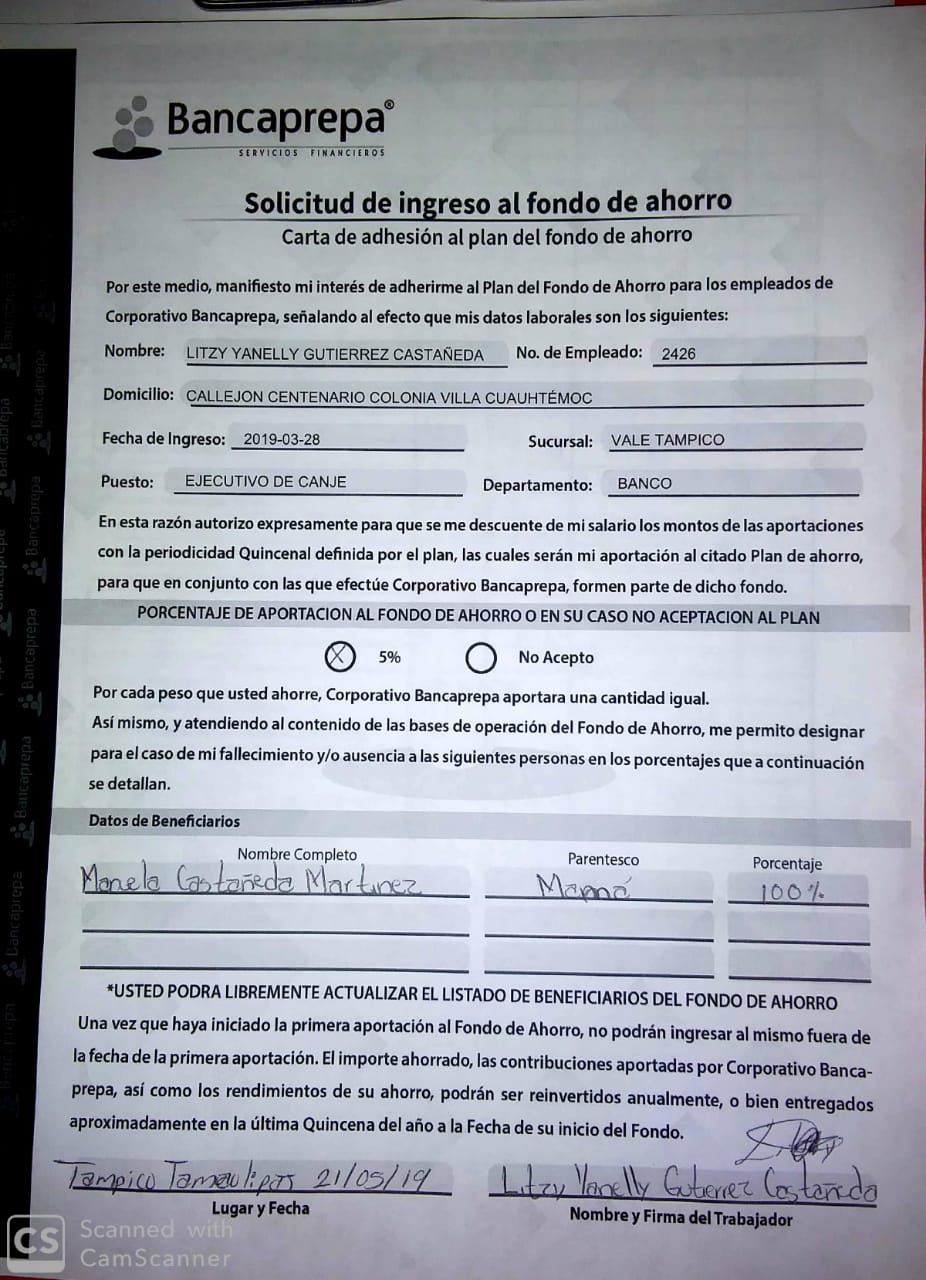 Bancaprepa®
SERVICIOS FINANCIEROS
Solicitud de ingreso al fondo de ahorro
Carta de adhesión al plan del fondo de ahorro
Por este medio, manifiesto mi interés de adherirme al Plan del Fondo de Ahorro para los empleados de
Corporativo Bancaprepa, señalando al efecto que mis datos laborales son los siguientes:
Nombre: LITZY YANELLY GUTIERREZ CASTAÑEDA No. de Empleado: 2426
Domicilio: CALLEJON CENTENARIO COLONIA VILLA CUAUHTÉMOC
Fecha de Ingreso: 2019-03-28 Sucursal: VALE TAMPICO
Puesto: EJECUTIVO DE CANJE Departamento: BANCO
En esta razón autorizo expresamente para que se me descuente de mi salario los montos de las aportaciones
con la periodicidad Quincenal definida por el plan, las cuales serán mi aportación al citado Plan de ahorro,
para que en conjunto con las que efectúe Corporativo Bancaprepa, formen parte de dicho fondo.
PORCENTAJE DE APORTACION AL FONDO DE AHORRO O EN SU CASO NO ACEPTACION AL PLAN
X 5% No Acepto
Por cada peso que usted ahorre, Corporativo Bancaprepa aportara una cantidad igual.
Así mismo, y atendiendo al contenido de las bases de operación del Fondo de Ahorro, me permito designar
para el caso de mi fallecimiento y/o ausencia a las siguientes personas en los porcentajes que a continuación
se detallan.
Datos de Beneficiarios
Nombre Completo Parentesco Porcentaje
Manela Castañeda Martinez Mamá 100%
*USTED PODRA LIBREMENTE ACTUALIZAR EL LISTADO DE BENEFICIARIOS DEL FONDO DE AHORRO
Una vez que haya iniciado la primera aportación al Fondo de Ahorro, no podrán ingresar al mismo fuera de
la fecha de la primera aportación. El importe ahorrado, las contribuciones aportadas por Corporativo Banca-
prepa, así como los rendimientos de su ahorro, podrán ser reinvertidos anualmente, o bien entregados
aproximadamente en la última Quincena del año a la Fecha de su inicio del Fondo.
Tampico Tamaulipas 21/05/19 Litzy Yanelly Gutierrez Castañeda
Lugar y Fecha Nombre y Firma del Trabajador
CS Scanned with
CamScanner